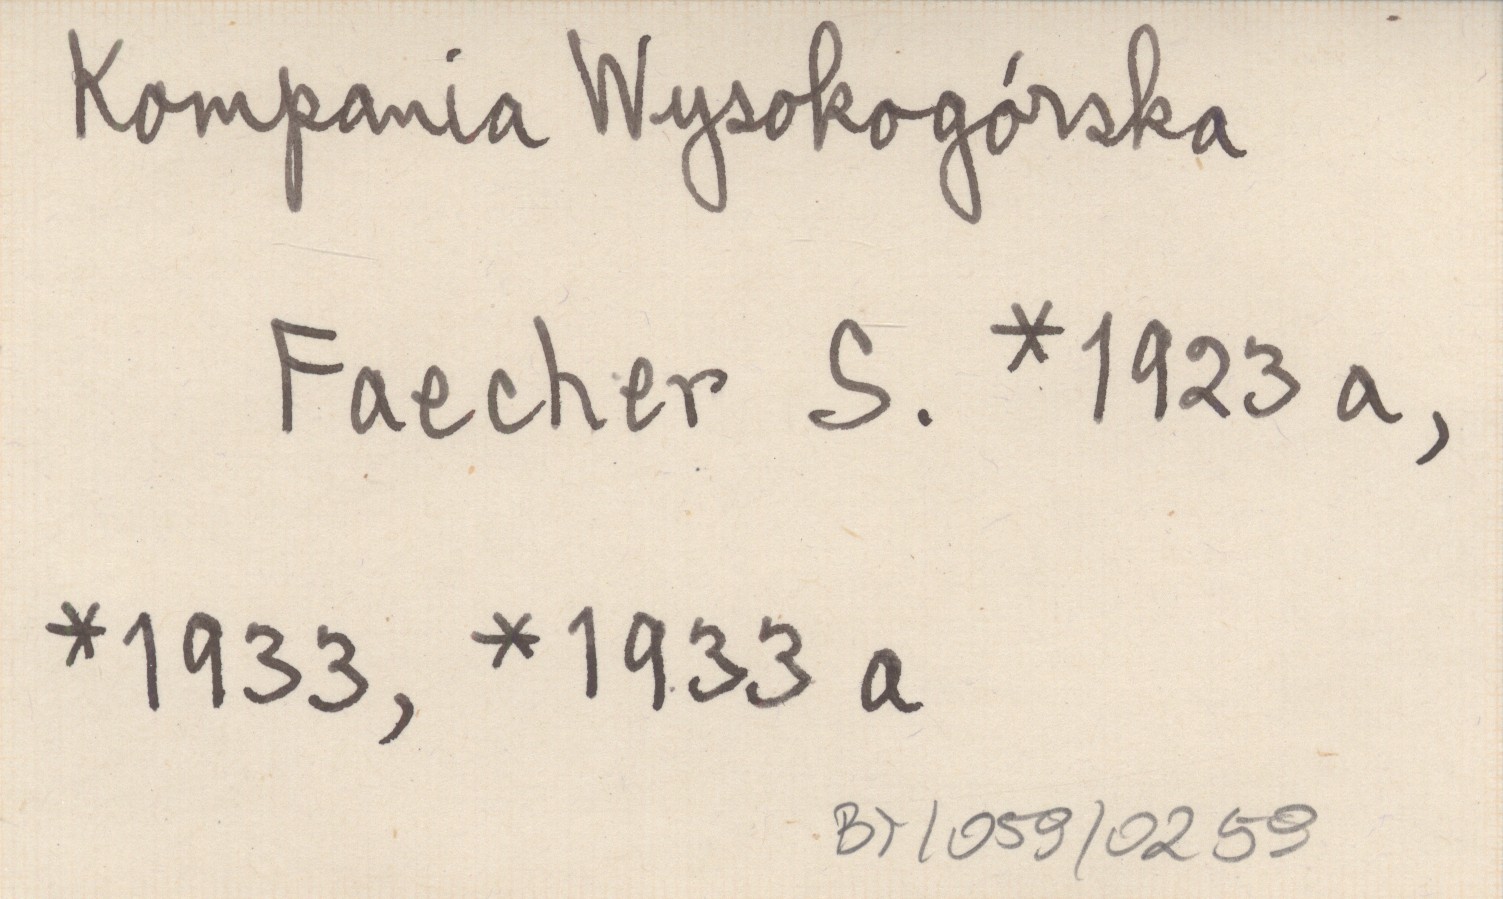 Kompania Wysokogórska
Faecher S. *1923 a,
*1933, *1933 a
BT/059/0259